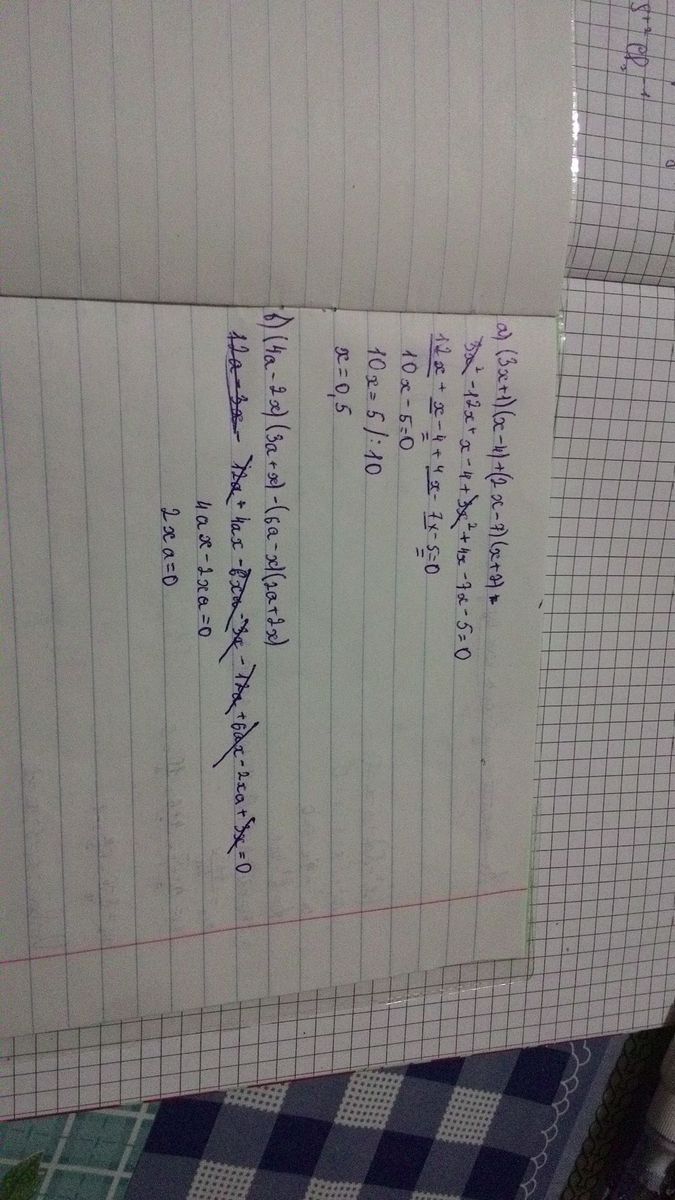 а) (3x+1)(x-4)+(2x-7)(x+2)=
3x² -12x+x-4+3x²+4x-7x-5=0
12x+x-4+4x-7x-5=0
10x-5=0
10x=5 /:10
x=0,5
б) (4a-2x)(3a+x)-(6a-x)(2a+2x)
12a-3x- 12a+4ax-6xa-3x-12a+6ax-2xa+3x=0
4ax-2xa=0
2xa=0